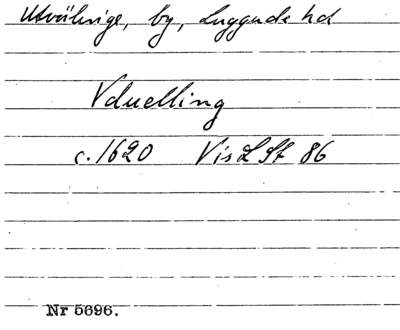 Utvälinge, by, Luggude hd
Vduelling
c. 1620 VisLSt 86
Nr 5696.